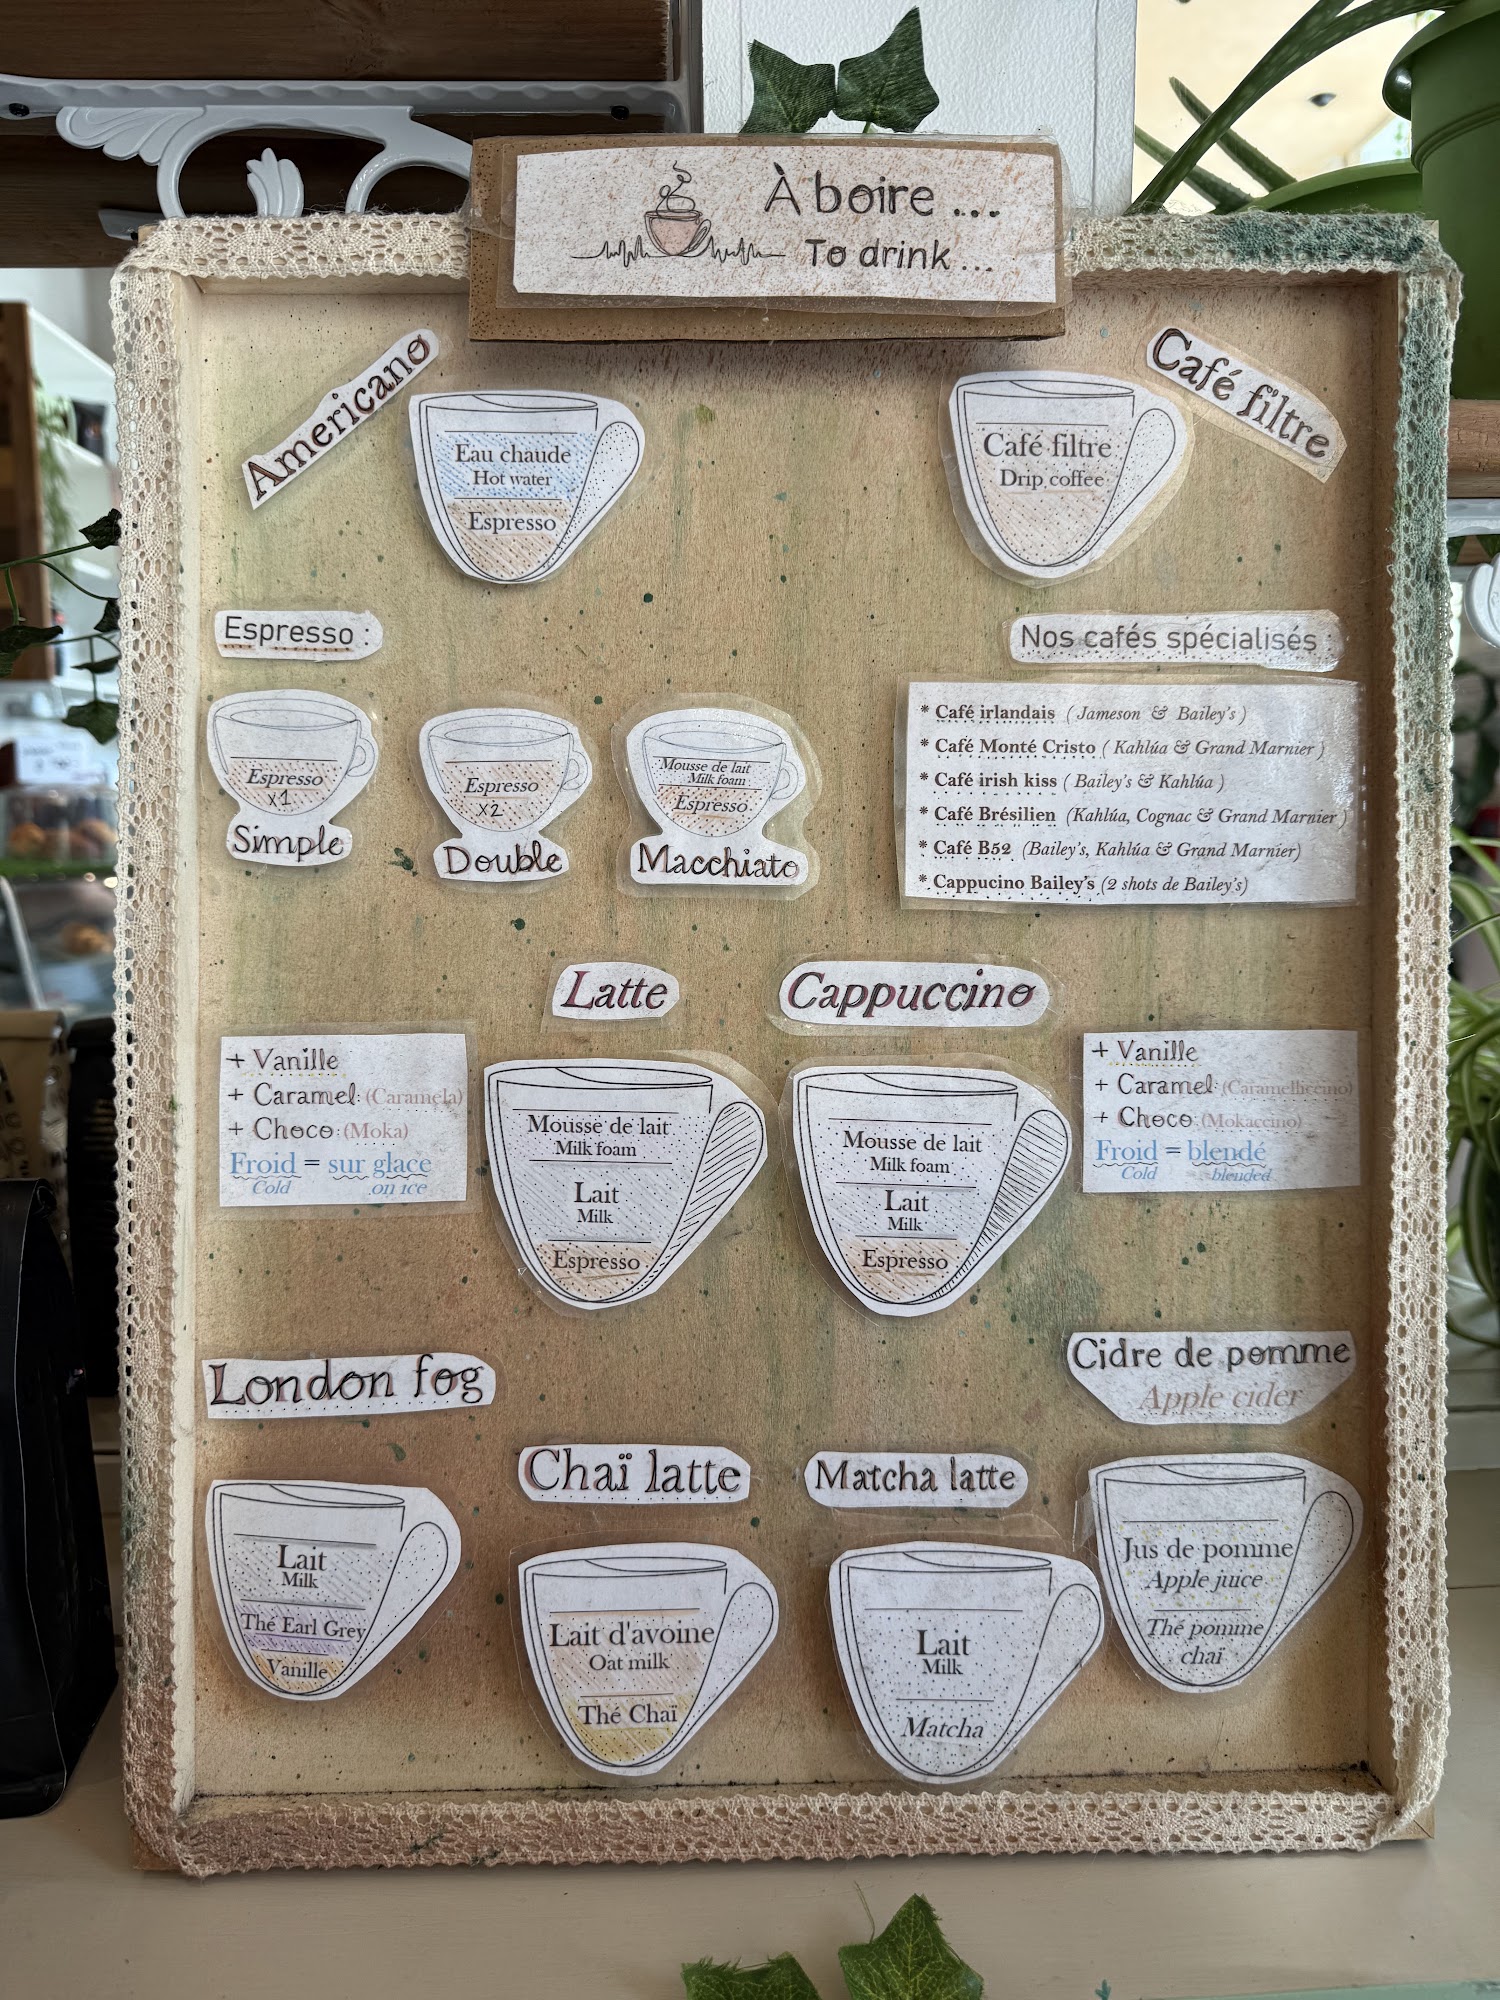 À boire ....
To drink ...
Americano
Eau chaude
Hot water
Espresso
Café filtre
Café filtre
Drip coffee
Espresso :
Espresso
x1
Simple
Espresso
x2
Double
Mousse de lait
Milk foam
Espresso
Macchiato
Nos cafés spécialisés :
* Café irlandais ( Jameson & Bailey's )
* Café Monté Cristo ( Kahlúa & Grand Marnier )
* Café irish kiss ( Bailey's & Kahlúa )
* Café Brésilien (Kahlúa, Cognac & Grand Marnier )
* Café B52 (Bailey's, Kahlúa & Grand Marnier)
* Cappucino Bailey's (2 shots de Bailey's)
Latte
+ Vanille
+ Caramel: (Caramela)
+ Choco: (Moka)
Froid = sur glace
Cold on ice
Mousse de lait
Milk foam
Lait
Milk
Espresso
Cappuccino
Mousse de lait
Milk foam
Lait
Milk
Espresso
+ Vanille
+ Caramel: (Caramelliccino)
+ Choco: (Mokaccino)
Froid = blendé
Cold blended
London fog
Lait
Milk
Thé Earl Grey
Vanille
Chaï latte
Lait d'avoine
Oat milk
Thé Chaï
Matcha latte
Lait
Milk
Matcha
Cidre de pomme
Apple cider
Jus de pomme
Apple juice
Thé pomme
chaï